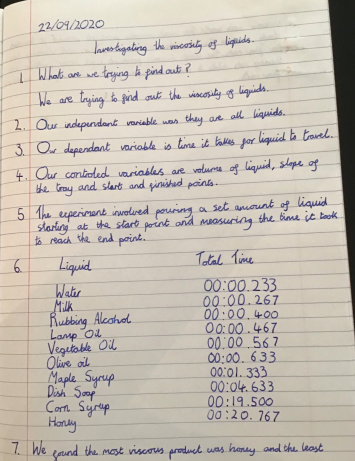 22/09/2020
Investigating the viscosity of liquids.
1. What are we trying to find out?
We are trying to find out the viscosity of liquids.
2. Our independant variable was they are all liquids.
3. Our dependant variable is time it takes for liquid to travel.
4. Our controled variables are volume of liquid, slope of
the tray and start and finished points.
5. The experiment involved pouring a set amount of liquid
starting at the start point and measuring the time it took
to reach the end point.
6. Liquid Total Time
Water 00:00.233
Milk 00:00.267
Rubbing Alcohol 00:00.400
Lamp Oil 00:00.467
Vegetable Oil 00:00.567
Olive oil 00:00.633
Maple Syrup 00:01.333
Dish Soap 00:04.633
Corn Syrup 00:19.500
Honey 00:20.767
7. We found the most viscous product was honey and the least